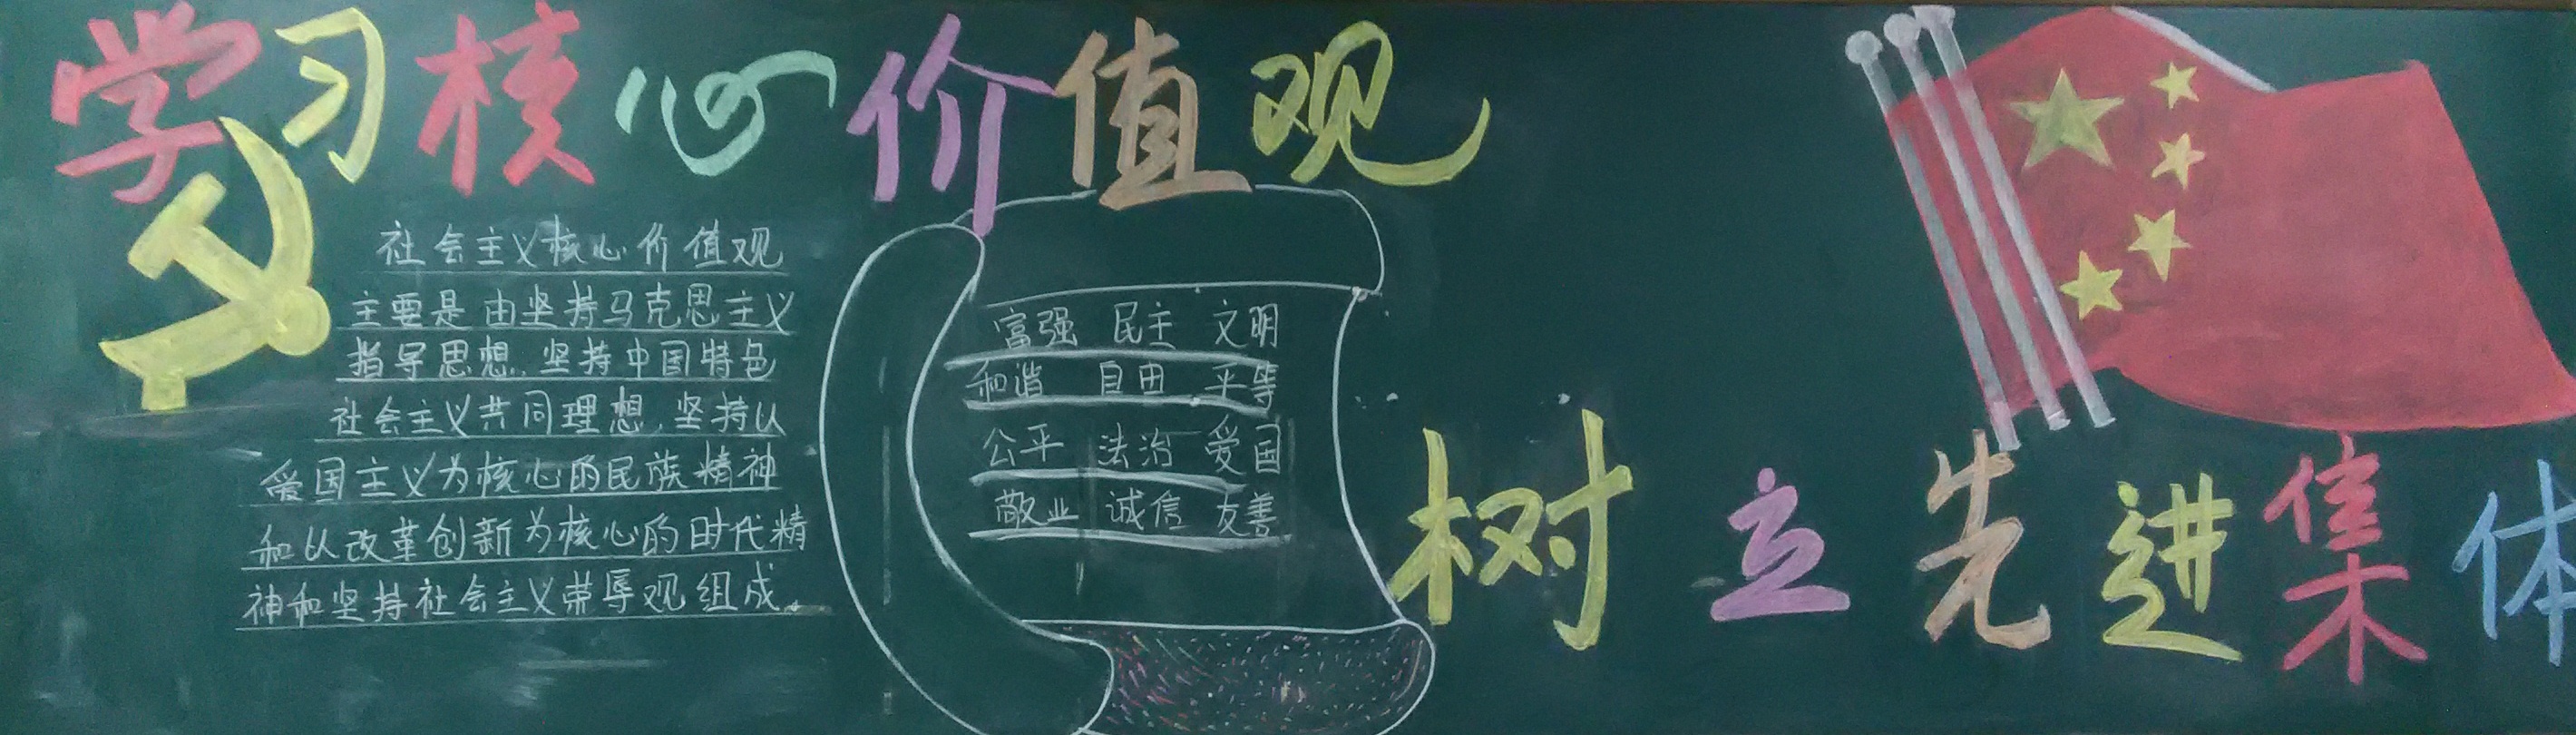 学习核心价值观
社会主义核心价值观
主要是由坚持马克思主义
指导思想，坚持中国特色
社会主义共同理想，坚持以
爱国主义为核心的民族精神
和以改革创新为核心的时代精
神和坚持社会主义荣辱观组成。
富强 民主 文明
和谐 自由 平等
公平 法治 爱国
敬业 诚信 友善
树立先进集体